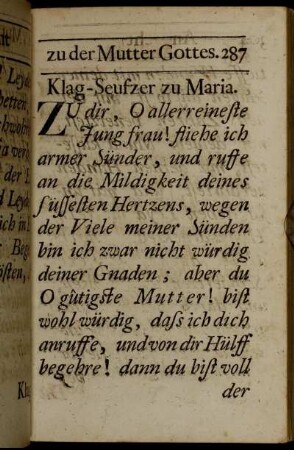 zu der Mutter Gottes. 287
Klag-Seufzer zu Maria.
ZU dir, O allerreineste
Jungfrau! fliehe ich
armer Sünder, und ruffe
an die Mildigkeit deines
süssesten Hertzens, wegen
der Viele meiner Sünden
bin ich zwar nicht würdig
deiner Gnaden; aber du
O gütigste Mutter! bist
wohl würdig, dass ich dich
anruffe, und von dir Hülff
begehre! dann du bist voll
der